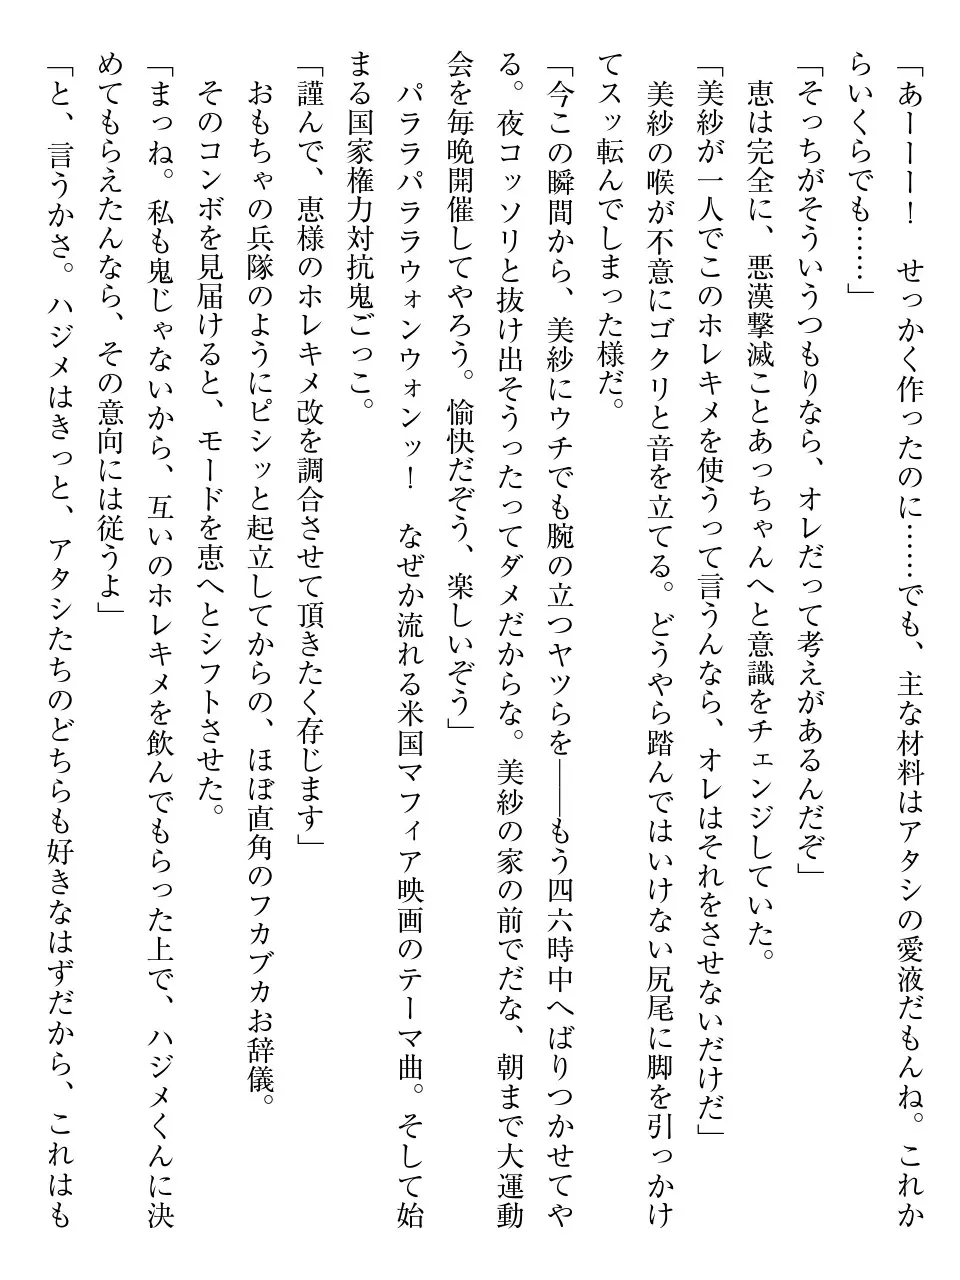 「あーーー！　せっかく作ったのに……でも、主な材料はアタシの愛液だもんね。これか
らいくらでも……」
「そっちがそういうつもりなら、オレだって考えがあるんだぞ」
　恵は完全に、悪漢撃滅ことあっちゃんへと意識をチェンジしていた。
「美紗が一人でこのホレキメを使うって言うんなら、オレはそれをさせないだけだ」
　美紗の喉が不意にゴクリと音を立てる。どうやら踏んではいけない尻尾に脚を引っかけ
てスッ転んでしまった様だ。
「今この瞬間から、美紗にウチでも腕の立つヤツらを――もう四六時中へばりつかせてや
る。夜コッソリと抜け出そうったってダメだからな。美紗の家の前でだな、朝まで大運動
会を毎晩開催してやろう。愉快だぞう、楽しいぞう」
　パララパララウォンウォンッ！　なぜか流れる米国マフィア映画のテーマ曲。そして始
まる国家権力対抗鬼ごっこ。
「謹んで、恵様のホレキメ改を調合させて頂きたく存じます」
　おもちゃの兵隊のようにピシッと起立してからの、ほぼ直角のフカブカお辞儀。
　そのコンボを見届けると、モードを恵へとシフトさせた。
「まっね。私も鬼じゃないから、互いのホレキメを飲んでもらった上で、ハジメくんに決
めてもらえたんなら、その意向には従うよ」
「と、言うかさ。ハジメはきっと、アタシたちのどちらも好きなはずだから、これはも